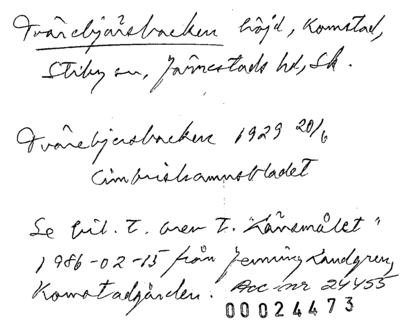 Tvärebjärsbacken höjd, Komstad,
Stiby sn, Järrestads hd, Sk.
Tvärebjersbacken 1929 20/6
Cimbrishamnsbladet
Se bil. t. brev t. "Länsmålet"
1986-02-15 från Henning Landgren,
Komstadgården. Acc-nr 24455
00024473